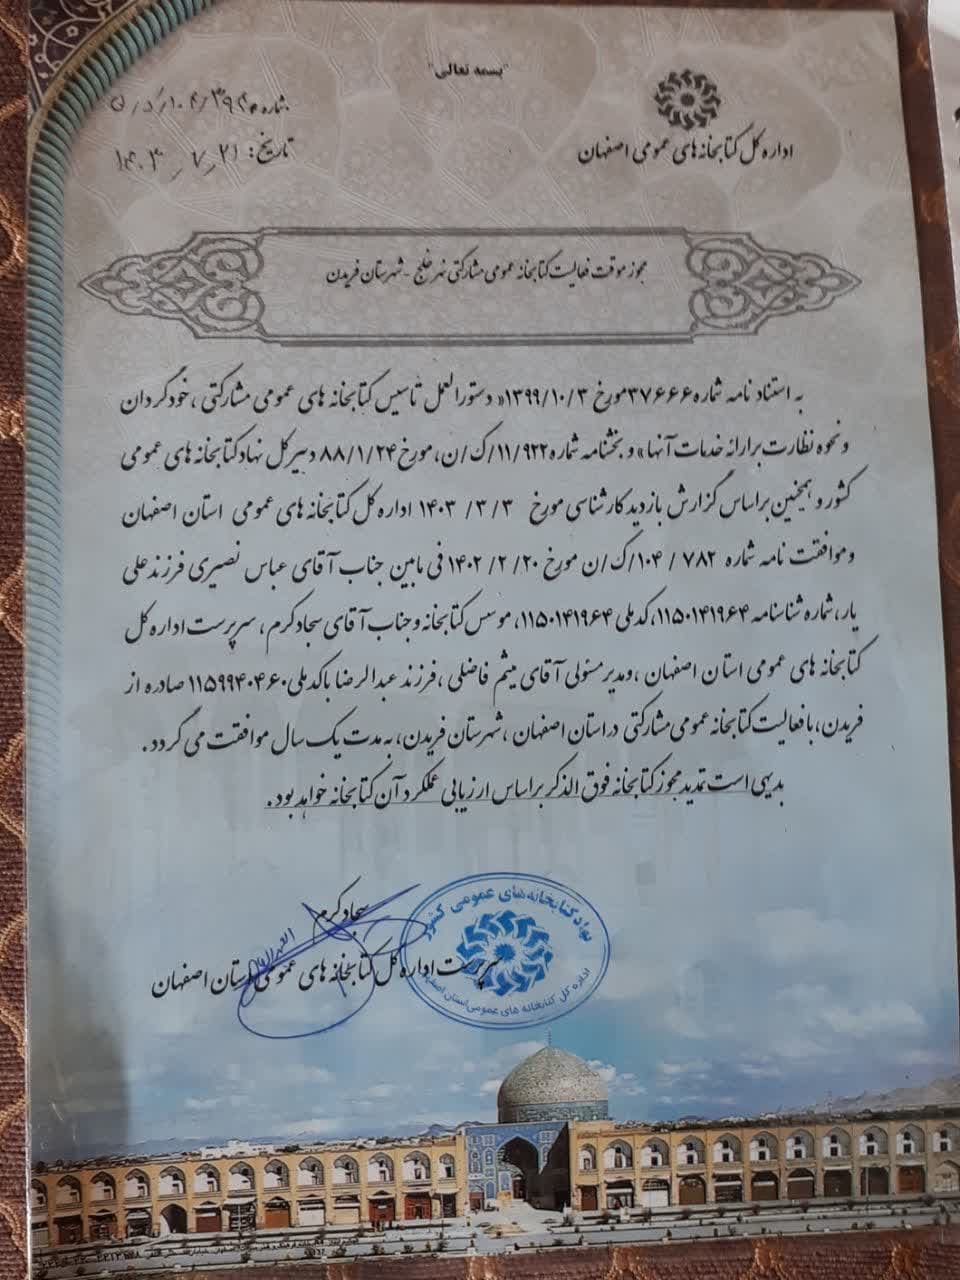 "بسمه تعالی"
اداره کل کتابخانه های عمومی اصفهان
شماره
تاریخ: ۱۴۰۳٫۷٫۲۱
مجوز موقت فعالیت کتابخانه عمومی مشارکتی نهر خلج - شهرستان فریدن
به استناد نامه شماره ۳۷۶۶۶ مورخ ۱۳۹۹/۱۰/۳ « دستورالعمل تأسیس کتابخانه های عمومی مشارکتی ، خودگردان
و نحوه نظارت بر ارائه خدمات آنها » و بخشنامه شماره ۱۱/۹۲۲/ک/ن، مورخ ۸۸/۱/۲۴ دبیرکل نهاد کتابخانه های عمومی
کشور و همچنین بر اساس گزارش بازدید کارشناسی مورخ ۳ /۳ /۱۴۰۳ اداره کل کتابخانه های عمومی استان اصفهان
و موافقت نامه شماره ۷۸۲ / ۱۰۴/ک/ن مورخ ۲۰ /۲ /۱۴۰۲ فی مابین جناب آقای عباس نصیری فرزند علی
یار، شماره شناسنامه ۱۱۵۰۱۴۱۹۶۴، کد ملی ۱۱۵۰۱۴۱۹۶۴، موسس کتابخانه و جناب آقای سجاد کرم، سرپرست اداره کل
کتابخانه های عمومی استان اصفهان ،و مدیر مسئولی آقای میثم فاضلی ،فرزند عبدالرضا با کد ملی ۱۱۵۹۹۴۰۴۶۰ صادره از
فریدن، با فعالیت کتابخانه عمومی مشارکتی در استان اصفهان ، شهرستان فریدن، به مدت یک سال موافقت می گردد .
بدیهی است تمدید مجوز کتابخانه فوق الذکر بر اساس ارزیابی عملکرد آن کتابخانه خواهد بود .
سجاد کرم
سرپرست اداره کل کتابخانه های عمومی استان اصفهان
نهاد کتابخانه های عمومی کشور
اداره کل کتابخانه های عمومی استان اصفهان